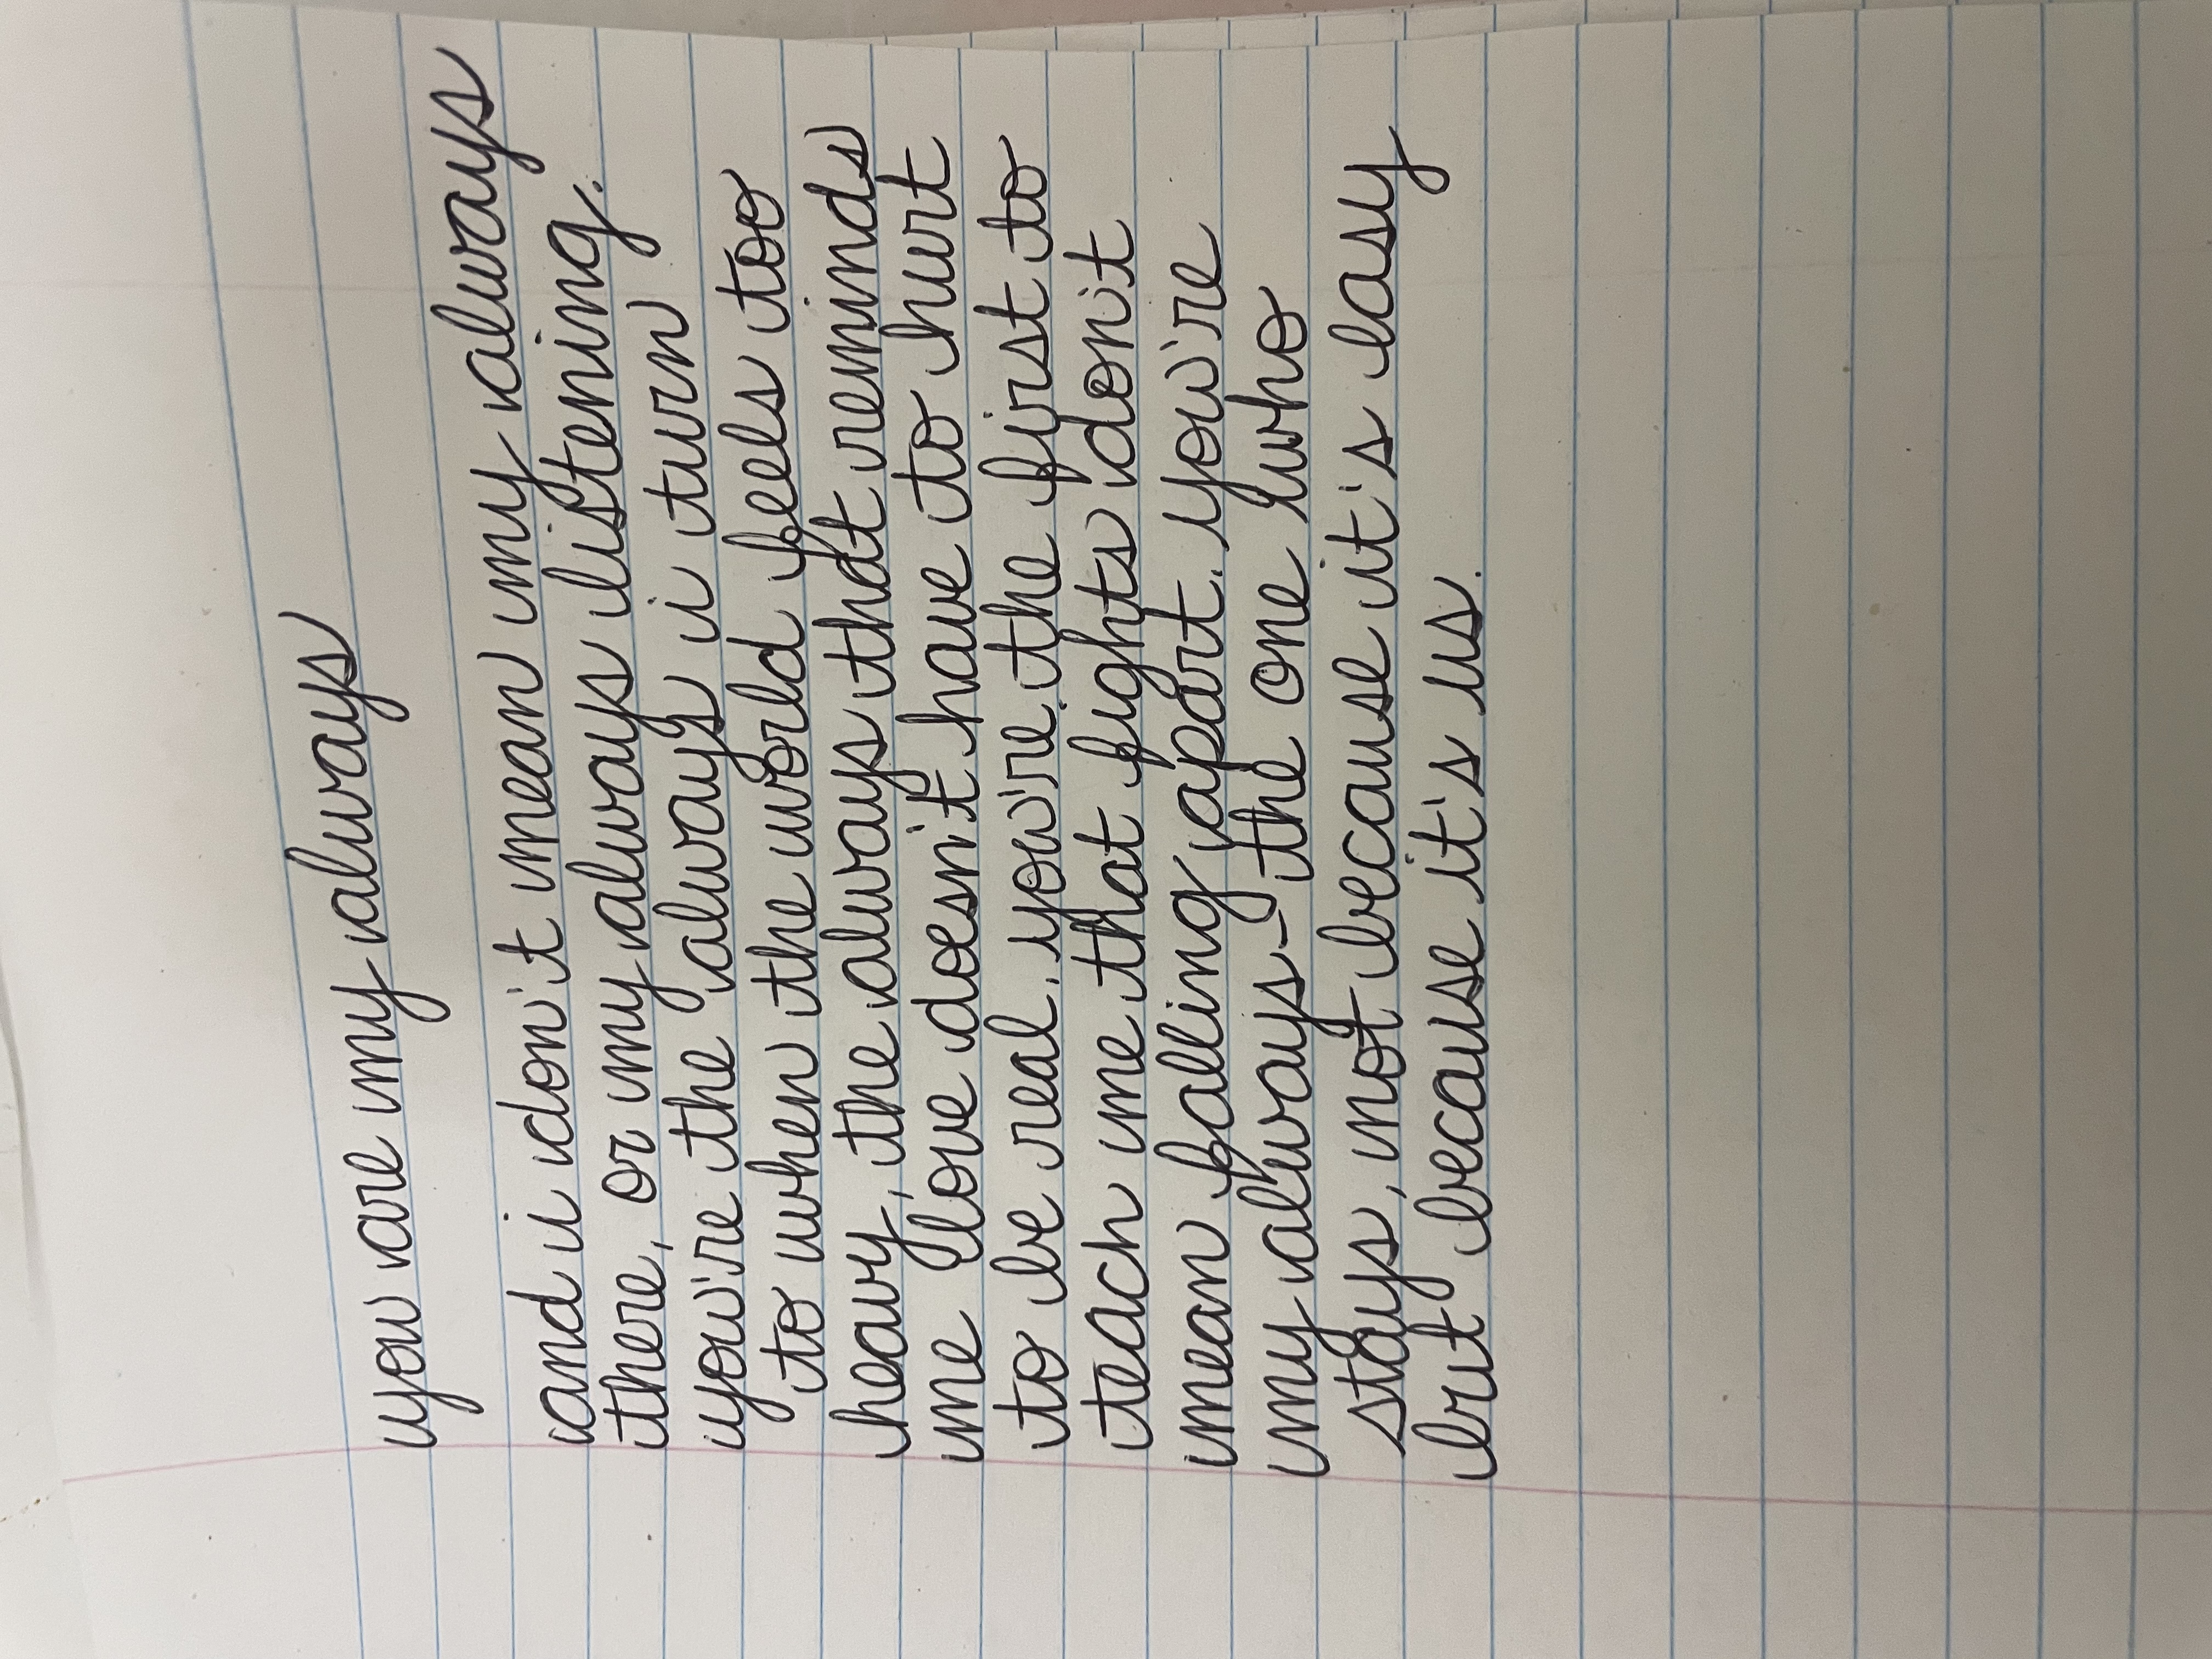 you are my always
and i don't mean my always
there, or my always listening.
you're the always i turn
to when the world feels too
heavy, the always that reminds
me love doesn't have to hurt
to be real. you're the first to
teach me that fights don't
mean falling apart. you're
my always - the one who
stays, not because it's easy
but because it's us.